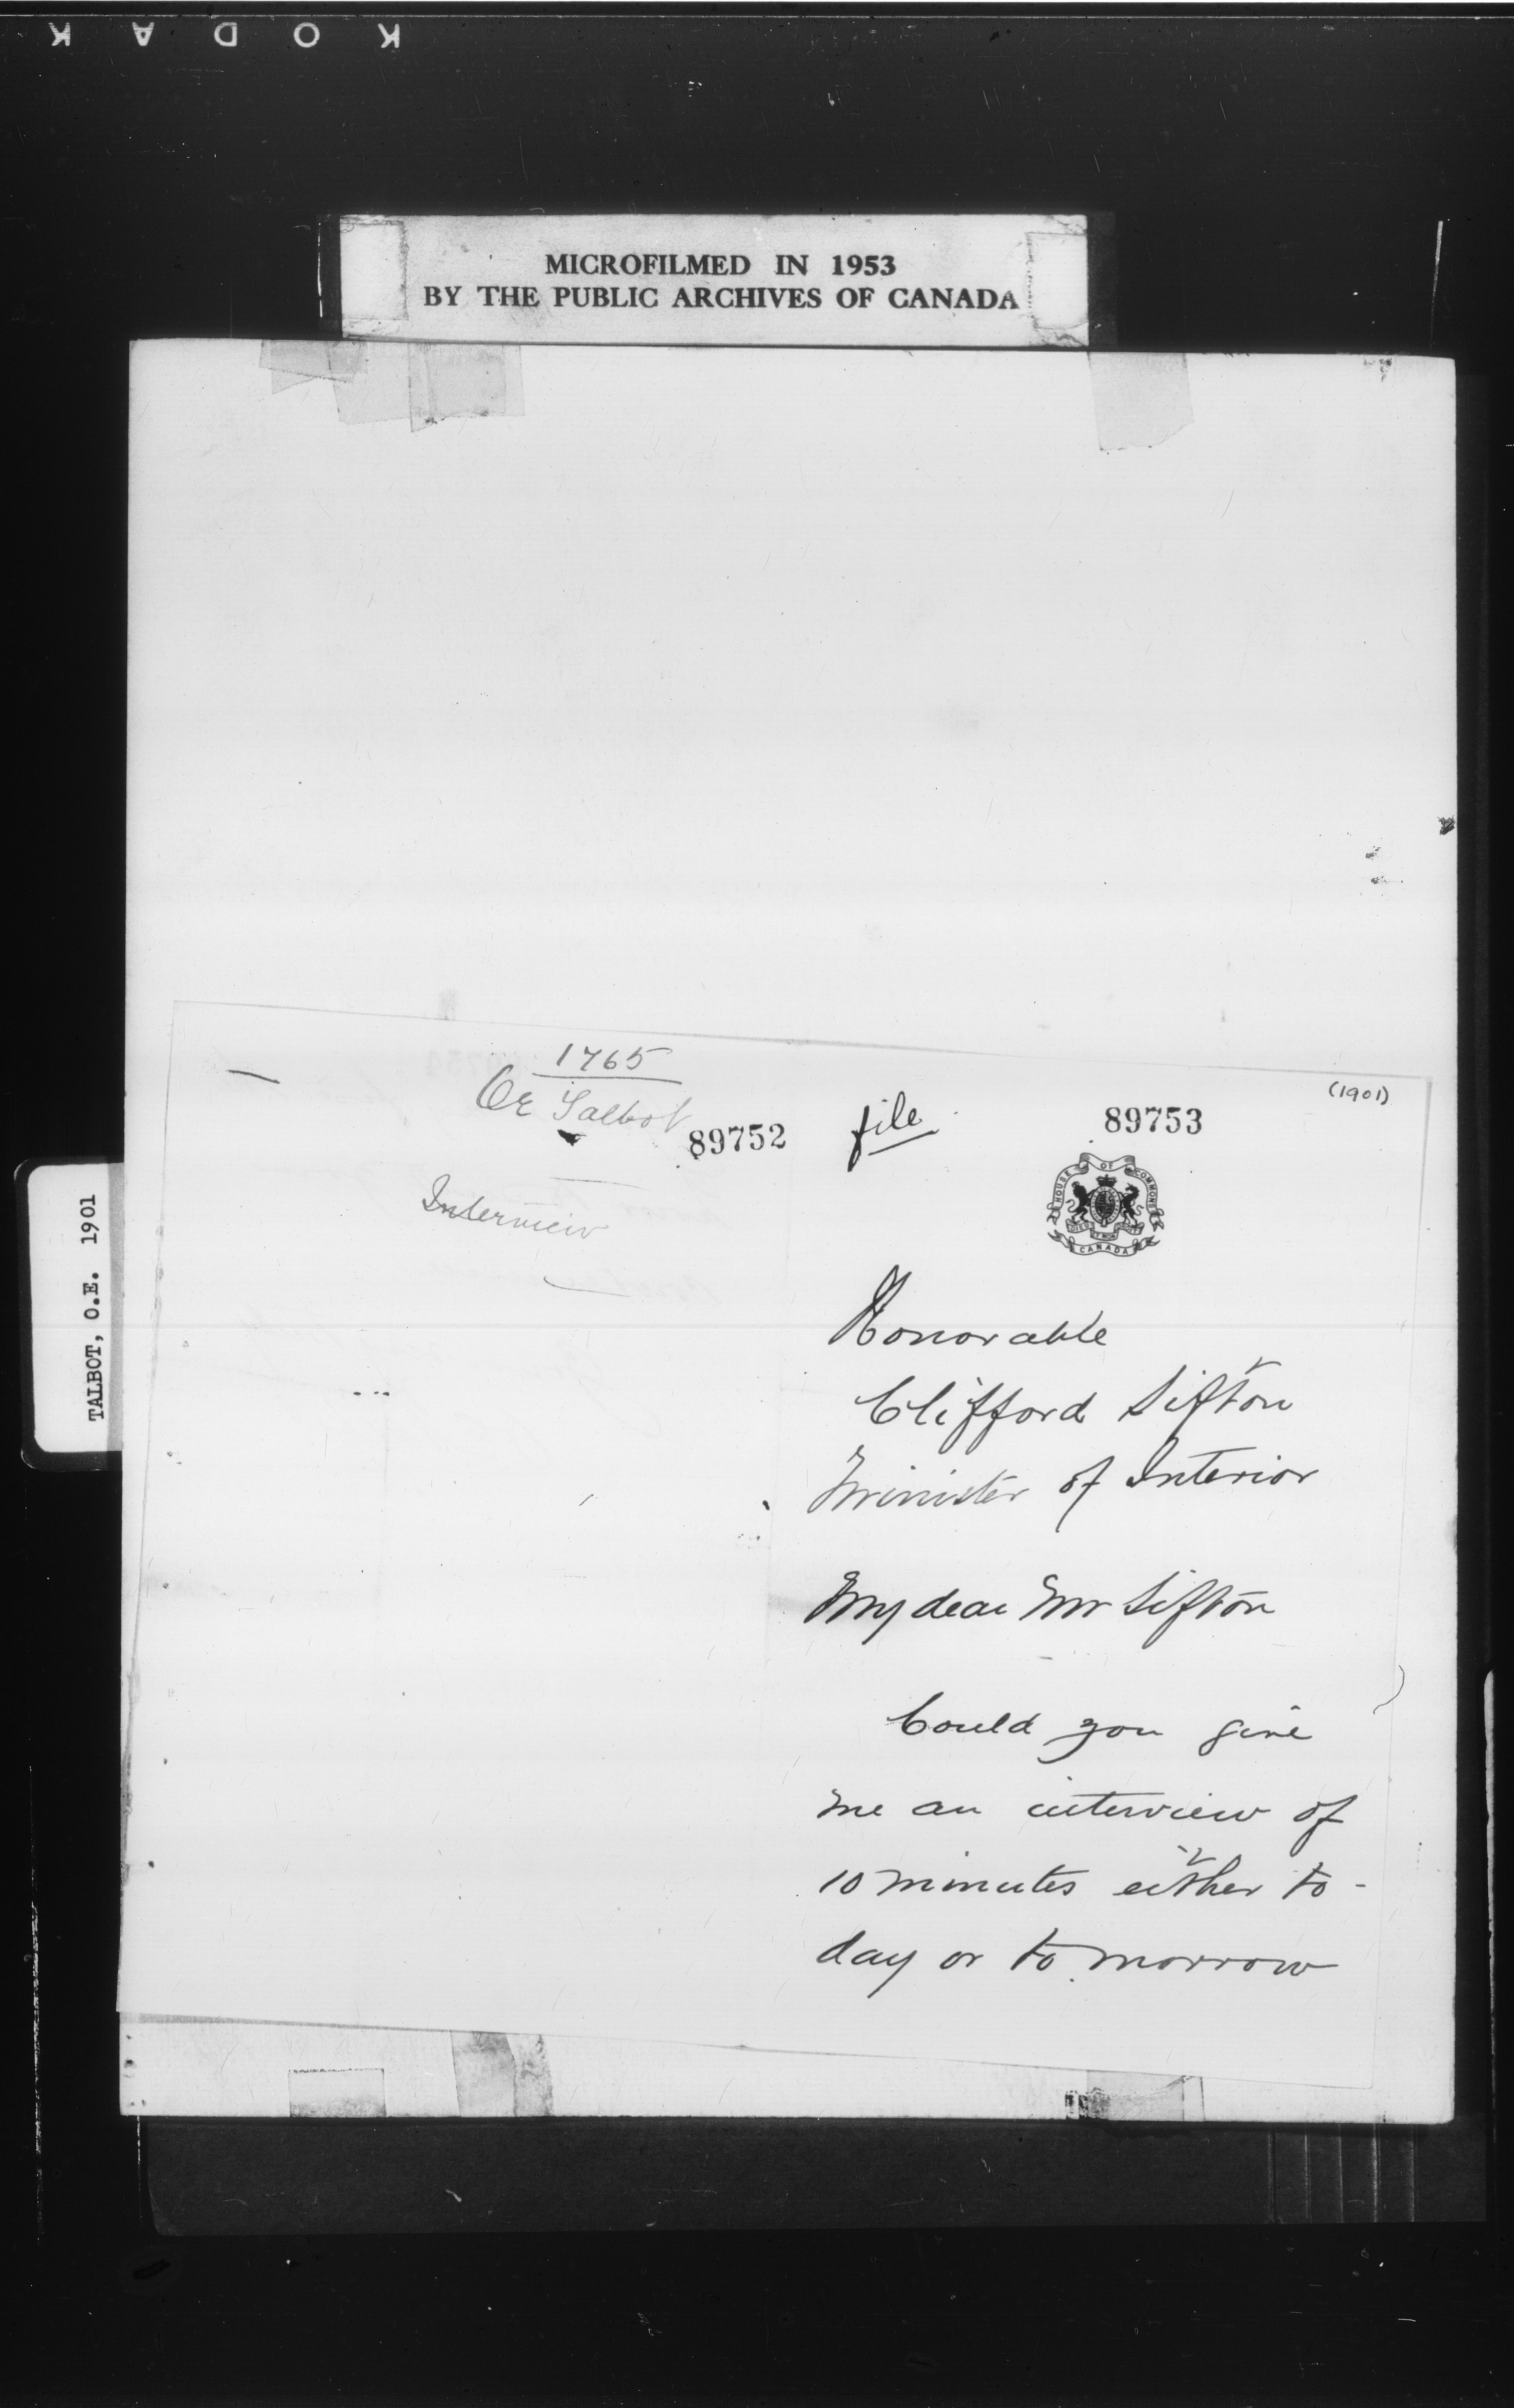 KODAK
MICROFILMED IN 1953
BY THE PUBLIC ARCHIVES OF CANADA
TALBOT, O.E. 1901
1765
OE Talbot
89752
Interview
file
(1901)
89753
HOUSE OF COMMONS
CANADA
Honorable
Clifford Sifton
Minister of Interior
My dear Mr Sifton
Could you give
me an interview of
10 minutes either to-
day or to morrow